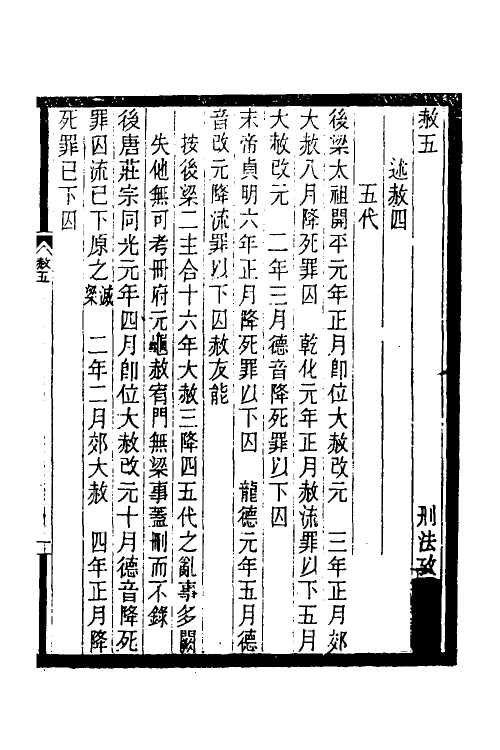 赦五　刑法攷
述赦四
五代
後梁太祖開平元年正月卽位大赦改元　三年正月郊
大赦八月降死罪囚　乾化元年正月赦流罪以下五月
大赦改元　二年三月德音降死罪以下囚
末帝貞明六年正月降死罪以下囚　龍德元年五月德
音改元降流罪以下囚赦友能
按後梁二主合十六年大赦三降四五代之亂事多闕
失他無可考冊府元龜赦宥門無梁事蓋刪而不錄
後唐莊宗同光元年四月卽位大赦改元十月德音降死
罪囚流已下原之誠梁　二年二月郊大赦　四年正月降
死罪已下囚
赦五